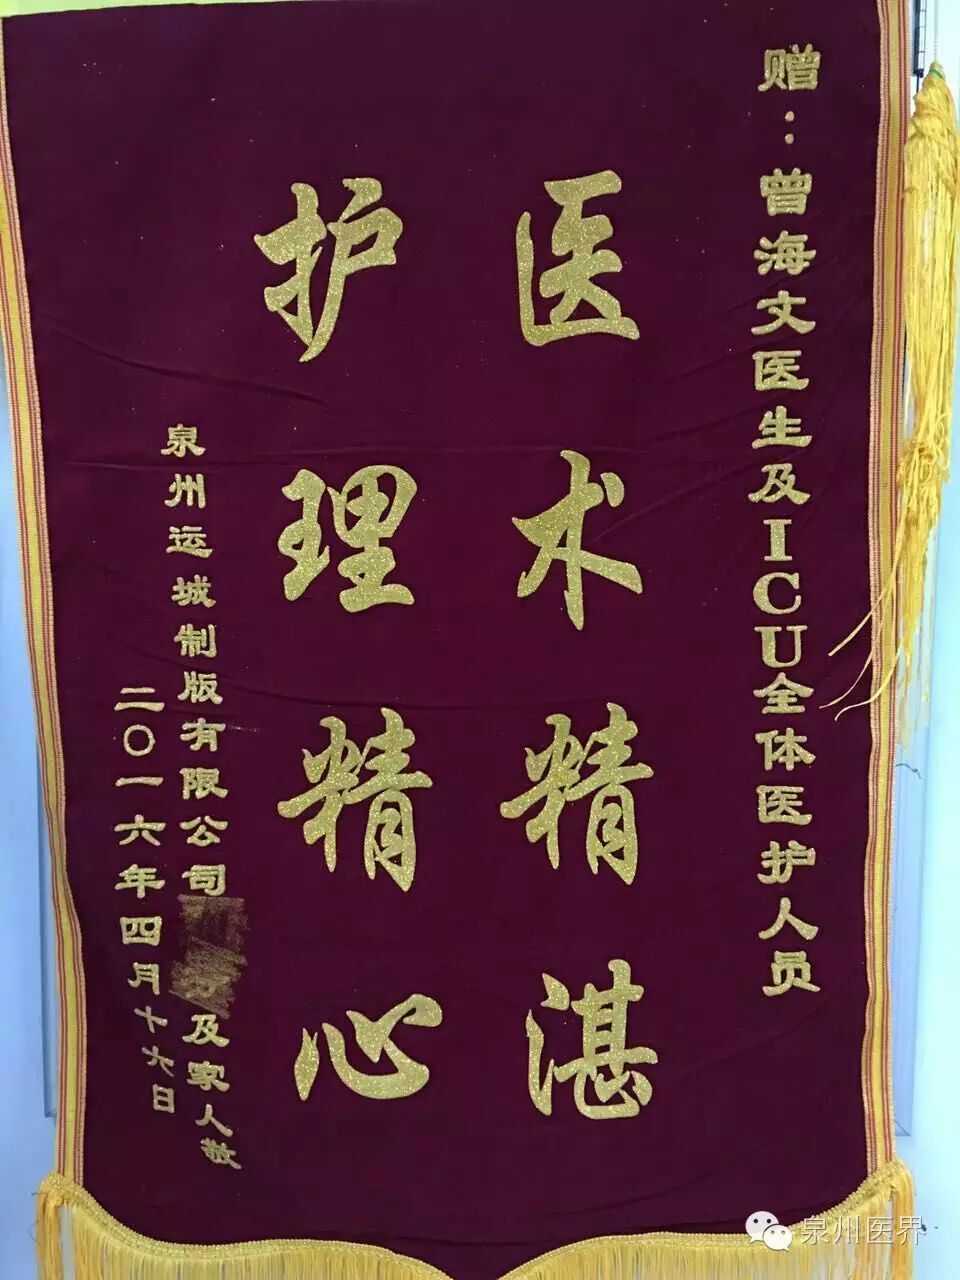 赠：曾海文医生及ICU全体医护人员
医术精湛
护理精心
泉州运城制版有限公司及家人敬
二〇一六年四月十六日
泉州医界